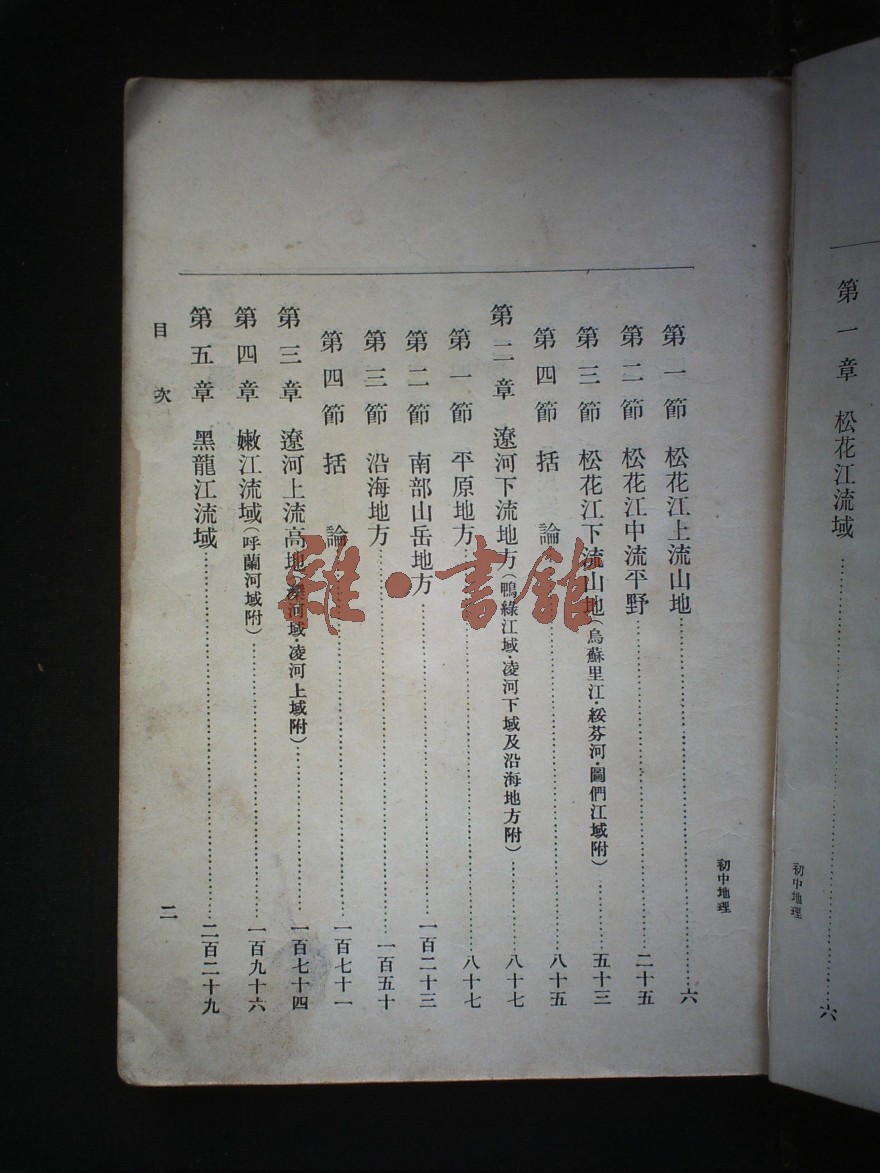 第一章 松花江流域……六
初中地理
初中地理
第一節 松花江上流山地……六
第二節 松花江中流平野……二十五
第三節 松花江下流山地(烏蘇里江·綏芬河·圖們江域附)……五十三
第四節 括論……八十五
第二章 遼河下流地方(鴨綠江域·凌河下域及沿海地方附)……八十七
第一節 平原地方……八十七
第二節 南部山岳地方……一百二十三
第三節 沿海地方……一百五十
第四節 括論……一百七十一
第三章 遼河上流高地(灤河域·凌河上域附)……一百七十四
第四章 嫩江流域(呼蘭河域附)……一百九十六
第五章 黑龍江流域……二百二十九
目次 二
雜·書館